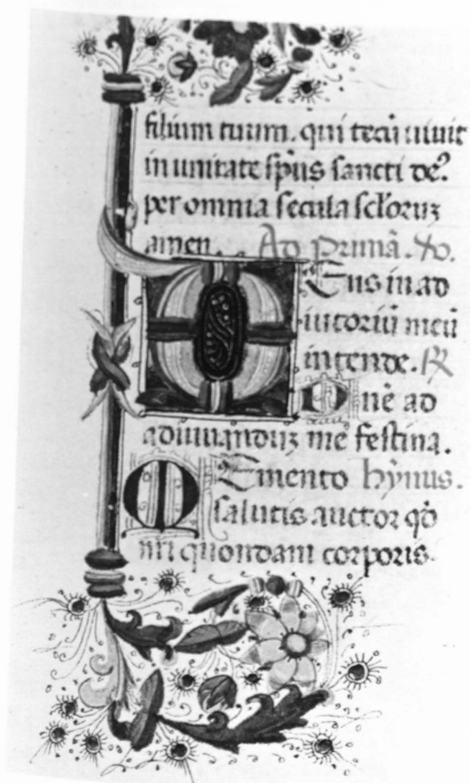 filium tuum. qui tecũ uiuit
in unitate sp̃us sancti de?
per omnia secula sc̃loruʒ
amen. Ad primã. vo.
Eus in ad
iutoriũ meũ
intende. R̃
Dñe ad
adiuuanduʒ me festina.
Memento hỹnus.
salutis auctor qđ
nr̃i quondam corporis.